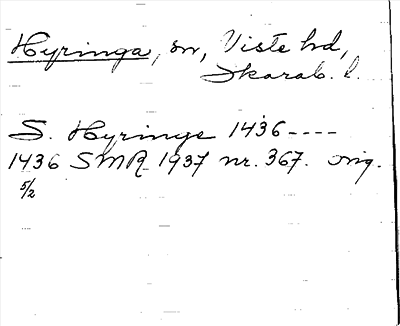 Hyringa, sn, Viste hd,
Skarab. l.
S. Hyringe 1436 ----
1436 SMR 1937 nr. 367. orig.
5/2